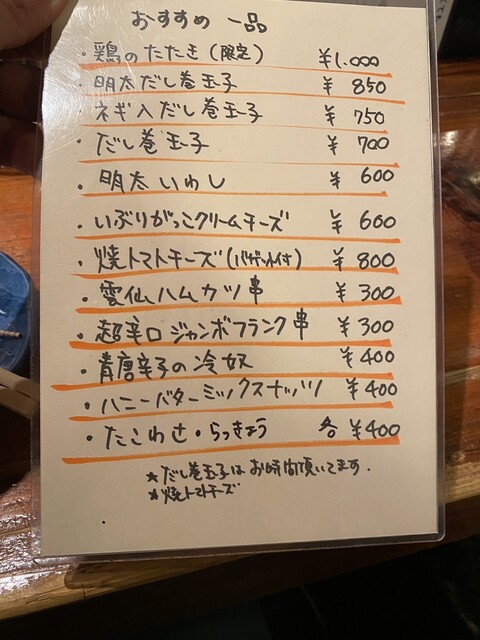 おすすめ 一品
・鶏のたたき(限定) ¥1,000
・明太だし巻玉子 ¥850
・ネギ入だし巻玉子 ¥750
・だし巻玉子 ¥700
・明太いわし ¥600
・いぶりがっこクリームチーズ ¥600
・焼トマトチーズ(バゲット付) ¥800
・雲仙ハムカツ串 ¥300
・超辛口ジャンボフランク串 ¥300
・青唐辛子の冷奴 ¥400
・ハニーバターミックスナッツ ¥400
・たこわさ・らっきょう 各¥400
*だし巻玉子はお時間頂いてます.
*焼トマトチーズ